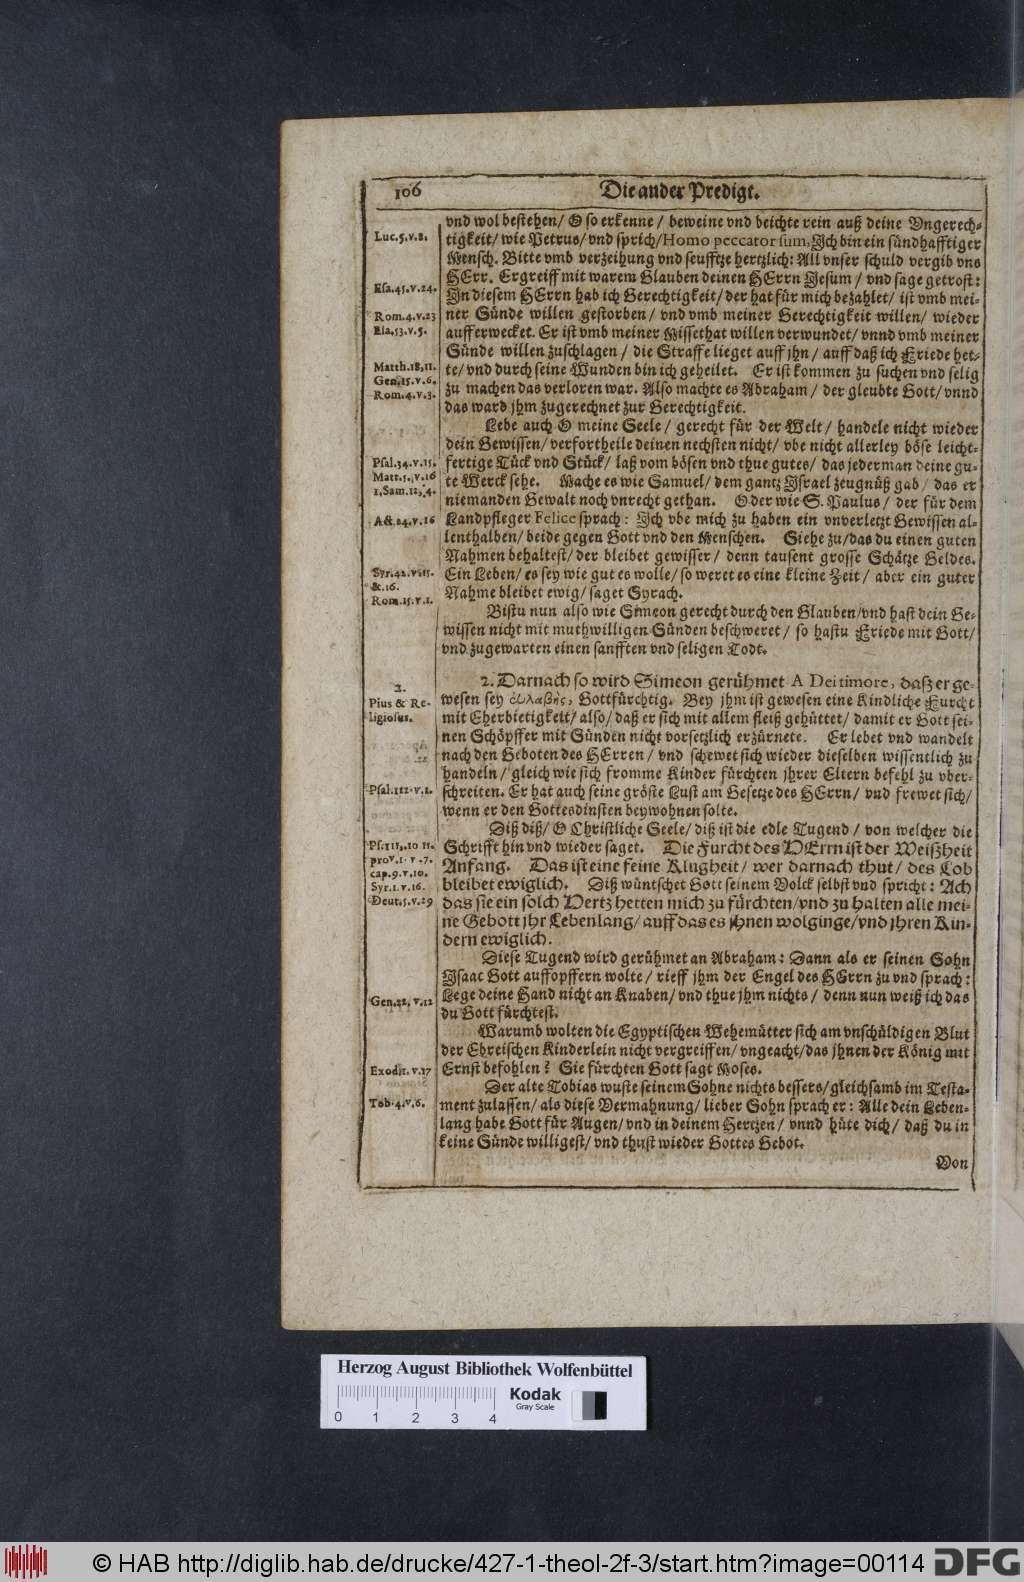 106 Die ander Predigt.
vnd wol bestehen/ O so erkenne/ beweine vnd beichte rein auß deine Vngerech-
Luc.5.v.8. tigkeit/ wie Petrus/ vnd sprich/ Homo peccator sum, Ich bin ein sündhafftiger
Mensch. Bitte vmb verzeihung vnd seufftze hertzlich: All vnser schuld vergib vns
HErr. Ergreiff mit warem Glauben deinen HErrn Jesum/ vnd sage getrost:
Esa.45.v.24. In diesem HErrn hab ich Gerechtigkeit/ der hat für mich bezahlet/ ist vmb mei-
Rom.4.v.23 ner Sünde willen gestorben/ vnd vmb meiner Gerechtigkeit willen/ wieder
Esa.53.v.5. aufferwecket. Er ist vmb meiner Missethat willen verwundet/ vnnd vmb meiner
Sünde willen zuschlagen/ die Straffe lieget auff jhn/ auff daß ich Friede het-
Matth.18,11. te/ vnd durch seine Wunden bin ich geheilet. Er ist kommen zu suchen vnd selig
Gen.15.v.6. zu machen das verloren war. Also machte es Abraham/ der gleubte Gott/ vnnd
Rom.4.v.3. das ward jhm zugerechnet zur Gerechtigkeit.
Lebe auch O meine Seele/ gerecht für der Welt/ handele nicht wieder
dein Gewissen/ verfortheile deinen nechsten nicht/ vbe nicht allerley böse leicht-
Psal.34.v.15. fertige Tück vnd Stück/ laß vom bösen vnd thue gutes/ das jederman deine gu-
Matt.5.v.16 te Werck sehe. Mache es wie Samuel/ dem gantz Israel zeugnüß gab/ das er
1.Sam.12,4. niemanden Gewalt noch vnrecht gethan. Oder wie S. Paulus/ der für dem
Act.24.v.16 Landpfleger Felice sprach: Ich vbe mich zu haben ein vnverletzt Gewissen al-
lenthalben/ beide gegen Gott vnd den Menschen. Siehe zu/ das du einen guten
Nahmen behaltest/ der bleibet gewisser/ denn tausent grosse Schätze Geldes.
Syr.42.v.15. Ein Leben/ es sey wie gut es wolle/ so weret es eine kleine Zeit/ aber ein guter
&.16. Nahme bleibet ewig/ saget Syrach.
Rom.15.v.1.
Bistu nun also wie Simeon gerecht durch den Glauben/ vnd hast dein Ge-
wissen nicht mit muthwilligen Sünden beschweret/ so hastu Friede mit Gott/
vnd zugewarten einen sanfften vnd seligen Todt.
2. 2. Darnach so wird Simeon gerühmet A Dei timore, daß er ge-
Pius & Re- wesen sey εὐλαβὴς, Gottfürchtig. Bey jhm ist gewesen eine Kindliche Furcht
ligiosus. mit Eherbietigkeit/ also/ daß er sich mit allem fleiß gehüttet/ damit er Gott sei-
nen Schöpffer mit Sünden nicht vorsetzlich erzürnete. Er lebet vnd wandelt
nach den Geboten des HErren/ vnd schewet sich wieder dieselben wissentlich zu
handeln/ gleich wie sich fromme Kinder fürchten jhrer Eltern befehl zu vber-
Psal.112.v.1. schreiten. Er hat auch seine gröste Lust am Gesetze des HErrn/ vnd frewet sich/
wenn er den Gottesdinsten beywohnen solte.
Diß diß/ O Christliche Seele/ diß ist die edle Tugend/ von welcher die
Ps.111,.10 11. Schrifft hin vnd wieder saget. Die Furcht des HErrn ist der Weißheit
prov.1. v.7. Anfang. Das ist eine feine Klugheit/ wer darnach thut/ des Lob
cap.9.v.10.
Syr.1.v.16. bleibet ewiglich. Diß wüntschet Gott seinem Volck selbst vnd spricht: Ach
Deut.5.v.29 das sie ein solch Hertz hetten mich zu fürchten/ vnd zu halten alle mei-
ne Gebott jhr Lebenlang/ auff das es jhnen wolginge/ vnd jhren Kin-
dern ewiglich.
Diese Tugend wird gerühmet an Abraham: Dann als er seinen Sohn
Isaac Gott auffopffern wolte/ rieff jhm der Engel des HErrn zu vnd sprach:
Gen.22, v.12 Lege deine Hand nicht an Knaben/ vnd thue jhm nichts/ denn nun weiß ich das
du Gott fürchtest.
Warumb wolten die Egyptischen Wehemütter sich am vnschüldigen Blut
der Ebreischen Kinderlein nicht vergreiffen/ vngeacht/ das jhnen der König mit
Exod.1. v.17 Ernst befohlen? Sie fürchten Gott sagt Moses.
Der alte Tobias wuste seinem Sohne nichts bessers/ gleichsamb im Testa-
Tob.4.v.6. ment zulassen/ als diese Vermahnung/ lieber Sohn sprach er: Alle dein Leben-
lang habe Gott für Augen/ vnd in deinem Hertzen/ vnnd hüte dich/ daß du in
keine Sünde willigest/ vnd thust wieder Gottes Gebot.
Von
Herzog August Bibliothek Wolfenbüttel
0 1 2 3 4
Kodak
Gray Scale
© HAB http://diglib.hab.de/drucke/427-1-theol-2f-3/start.htm?image=00114
DFG